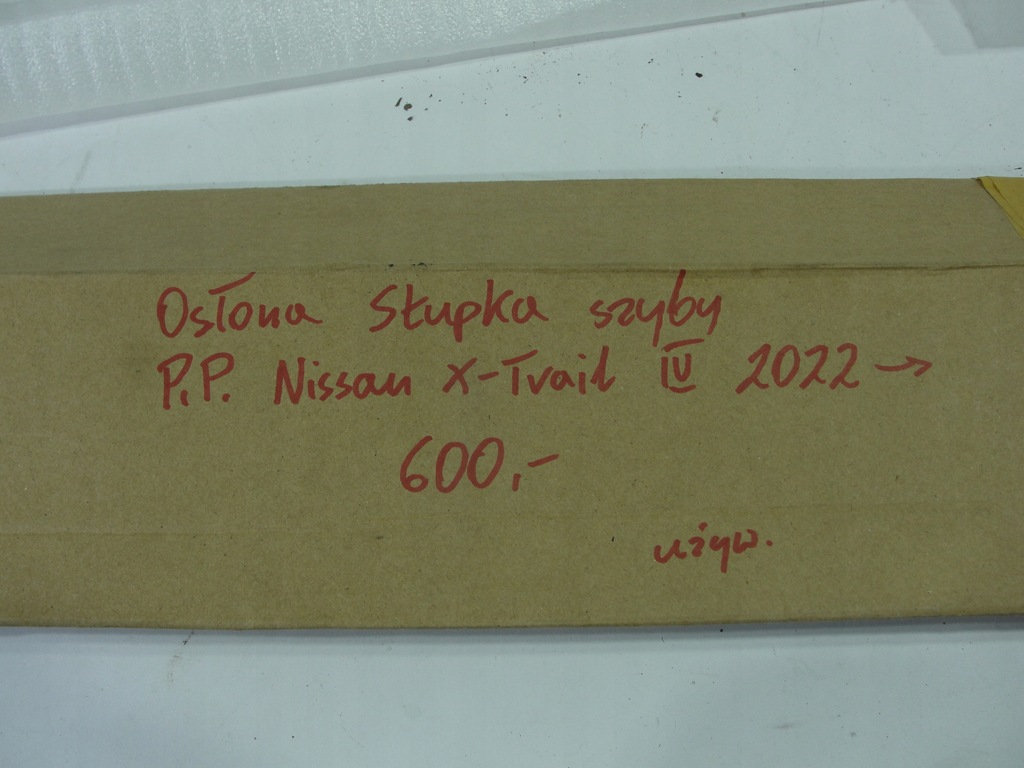 Osłona Słupka szyby
P.P. Nissan X-Trail IV 2022 →
600,-
używ.